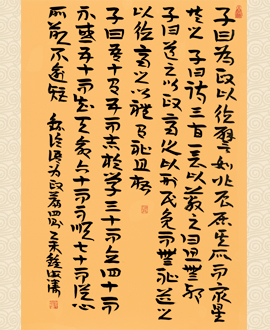 子曰为政以德譬如北辰居其所而众星
共之 子曰诗三百一言以蔽之曰思無邪
子曰道之以政齐之以刑民免而無耻道之
以德齐之以礼有耻且格
子曰吾十有五而志於学三十而立四十而
不惑五十而知天命六十而耳顺七十而从心
所欲不逾矩 论语为政篇四则 乙未